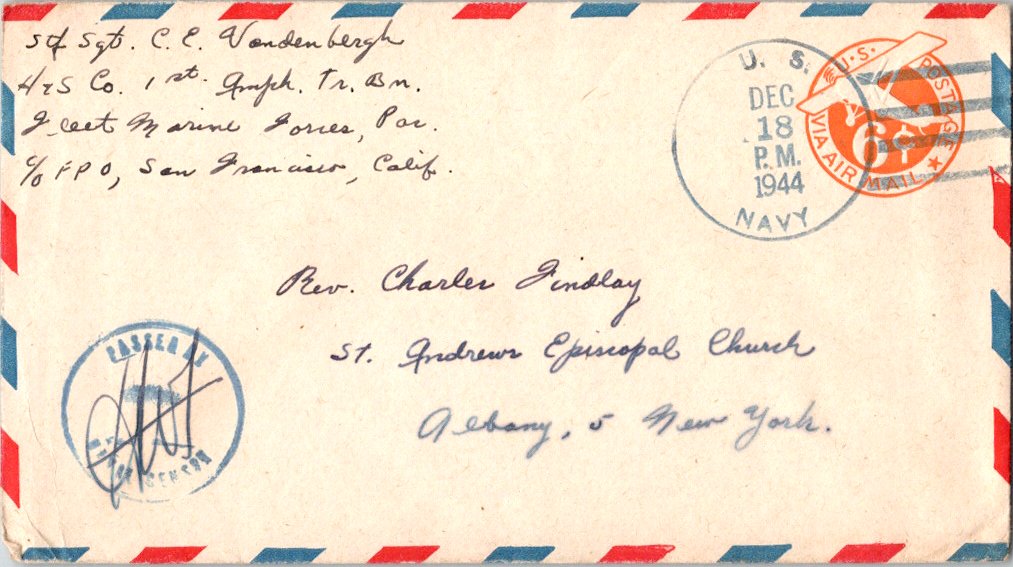 Stf Sgt. C. E. Vandenbergh
H&S Co. 1st. Amph. Tr. Bn.
Fleet Marine Forces, Pac.
c/o FPO, San Francisco, Calif.
U. S.
DEC
18
P.M.
1944
NAVY
U.S. POSTAGE
6¢
VIA AIR MAIL
Rev. Charles Findlay
St. Andrews Episcopal Church
Albany, 5 New York.
PASSED BY
NAVAL CENSOR